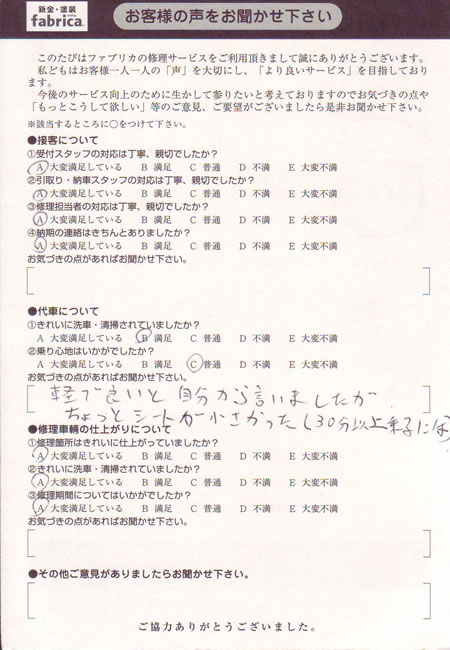 鈑金・塗装
fabrica.
お客様の声をお聞かせ下さい
このたびはファブリカの修理サービスをご利用頂きまして誠にありがとうございます。
私どもはお客様一人一人の「声」を大切にし、「より良いサービス」を目指しており
ます。
今後のサービス向上のために生かして参りたいと考えておりますのでお気づきの点や
「もっとこうして欲しい」等のご意見、ご要望がございましたら是非お聞かせ下さい。
※該当するところに○をつけて下さい。
●接客について
①受付スタッフの対応は丁寧、親切でしたか?
A 大変満足している B 満足 C 普通 D 不満 E 大変不満
②引取り・納車スタッフの対応は丁寧、親切でしたか?
A 大変満足している B 満足 C 普通 D 不満 E 大変不満
③修理担当者の対応は丁寧、親切でしたか?
A 大変満足している B 満足 C 普通 D 不満 E 大変不満
④納期の連絡はきちんとありましたか?
A 大変満足している B 満足 C 普通 D 不満 E 大変不満
お気づきの点があればお聞かせ下さい。
●代車について
①きれいに洗車・清掃されていましたか?
A 大変満足している B 満足 C 普通 D 不満 E 大変不満
②乗り心地はいかがでしたか?
A 大変満足している B 満足 C 普通 D 不満 E 大変不満
お気づきの点があればお聞かせ下さい。
軽で良いと自分から言いましたが
ちょっとシートが小さかった(30分以上乗るには)
●修理車輌の仕上がりについて
①修理箇所はきれいに仕上がっていましたか?
A 大変満足している B 満足 C 普通 D 不満 E 大変不満
②きれいに洗車・清掃されていましたか?
A 大変満足している B 満足 C 普通 D 不満 E 大変不満
③修理期間についてはいかがでしたか?
A 大変満足している B 満足 C 普通 D 不満 E 大変不満
お気づきの点があればお聞かせ下さい。
●その他ご意見がありましたらお聞かせ下さい。
ご協力ありがとうございました。